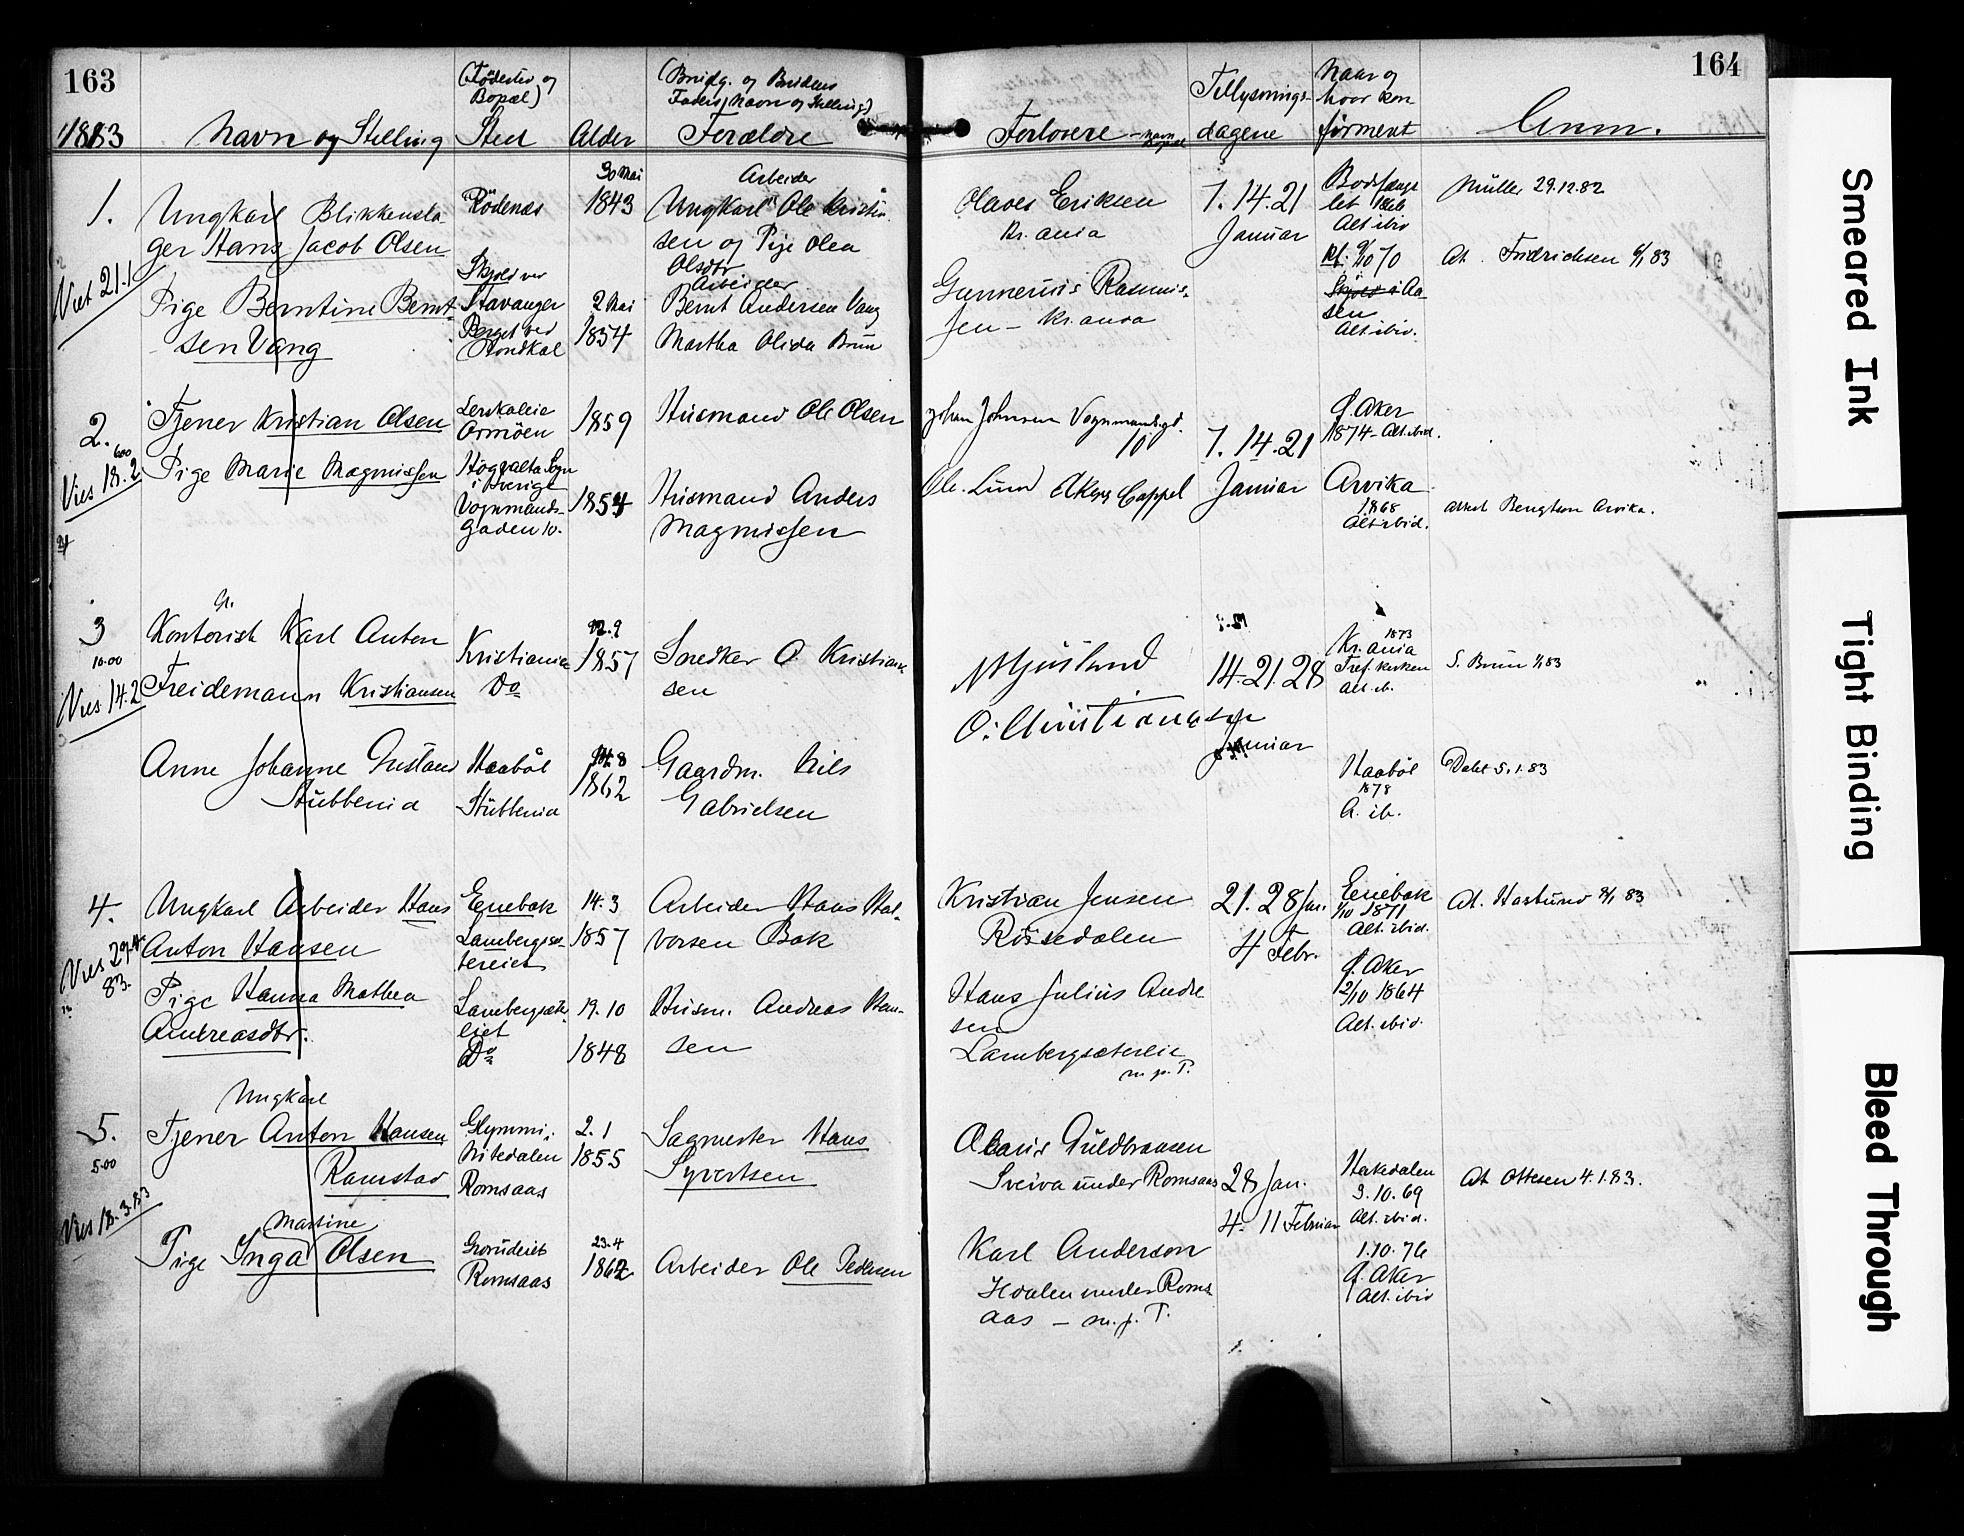 163
164
1883
(Födested og
Bopæl)
(Brudg. og Brudens
Faders Navn og Stilling)
Navn og Stilling
Sted
Alder
Forældre
Forlovere - Navn
Bopæl
Tillysnings-
dagene
Naar og
hvor kon
firmeret
Anm.
1.
Viet 21.1
Ungkarl Blikkensla
ger Hans Jacob Olsen
Rödenæs
30 Mai
1843
Arbeider
Ungkarl Ole Kristin
sen og Pige Olea
Olsdtr
Olaves Eriksen
Kr.ania
7. 14. 21
Januar
Bodsfænge
let 1866
Alt ibid
Müller 29.12.82
Pige Berntine Bernt
sen Vang
Skjold ved
Stavanger
Berget ved
2 Mai
1854
Arbeider
Bernt Andersen Vang
Martha Olida Brun
Gunnerius Rasmus-
sen - Kr.ania
70
sen
Alt. ibid.
At. Fridrichsen 6/1 83
2.
600
Vies 18.2
Tjener Kristian Olsen
Ormöen
1859
Husmand Ole Olsen
Johan Johnsen Vognmandsgd.
10
7. 14. 21
Januar
Ø. Aker
1874 - Alt. ibid.
Pige Marie Magnussen
Högvalta Sogn
i Sverige
Vognmands-
gaden 10.
1854
Husmand Anders
Magnussen
Ole Lund Akers Cappel
Arvika
1868
Alt ibid.
Attest Bengtson Arvika.
3
10.00
Vies 14.2
Kontorist Karl Anton
Freidemann Kristiansen
Kristiania
Do
12.9
1857
Snedker O Kristian
sen
N Mjösland
O. Christiansen
14. 21. 28
Januar
1873
Kr.ania
Tref. kirken
alt. ib.
S. Brun 83
Anne Johanne Gustava
Stubbenia
Haaböl
Stubbenia
14.8
1862
Gaardm. Nils
Gabrielsen
Haaböl
1878
A. ib.
Dalet 5.1.83
4.
Vies 29.4
83.
Ungkarl Arbeider Hans
Anton Hansen
Enebak
Lambergsæ
tereiet
14.3
1857
Arbeider Hans Hal-
vorsen Bak
Kristian Jensen
Rosedalen
21. 28 Jan.
4 Febr.
Enebak
1/10 1871
Alt. ibid.
At. Hartund 8/1 83
Pige Hanna Mathea
Andreasdtr.
Lambergsæter
eiet
Do
19.10
1848
Husm. Andreas Han-
sen
Hans Julius Andre
sen
Lambergsætereie
m. p. P.
Ø. Aker
2/10 1864
Alt. ibid.
5.
5.00
Vies 18.3.83
Ungkarl
Tjener Anton Hansen
Ramstad
Glymmi
Nitedalen
Romsaas
2.1
1855
Sagmester Hans
Syvertsen
Olaus Guldbransen
Sveiva under Romsaas
28 Jan.
4. 11 Februar
Hakedalen
3.10.69
Alt. ibid.
At Ottesen 4.1.83.
Martine
Pige Inga Olsen
Grorudeiet
Romsaas
23.4
1862
Arbeider Ole Pedersen
Karl Anderson
under Roms
aas - m. p. P.
1.10.76
Ø. Aker
Alt. ibid
Smeared Ink
Tight Binding
Bleed Through